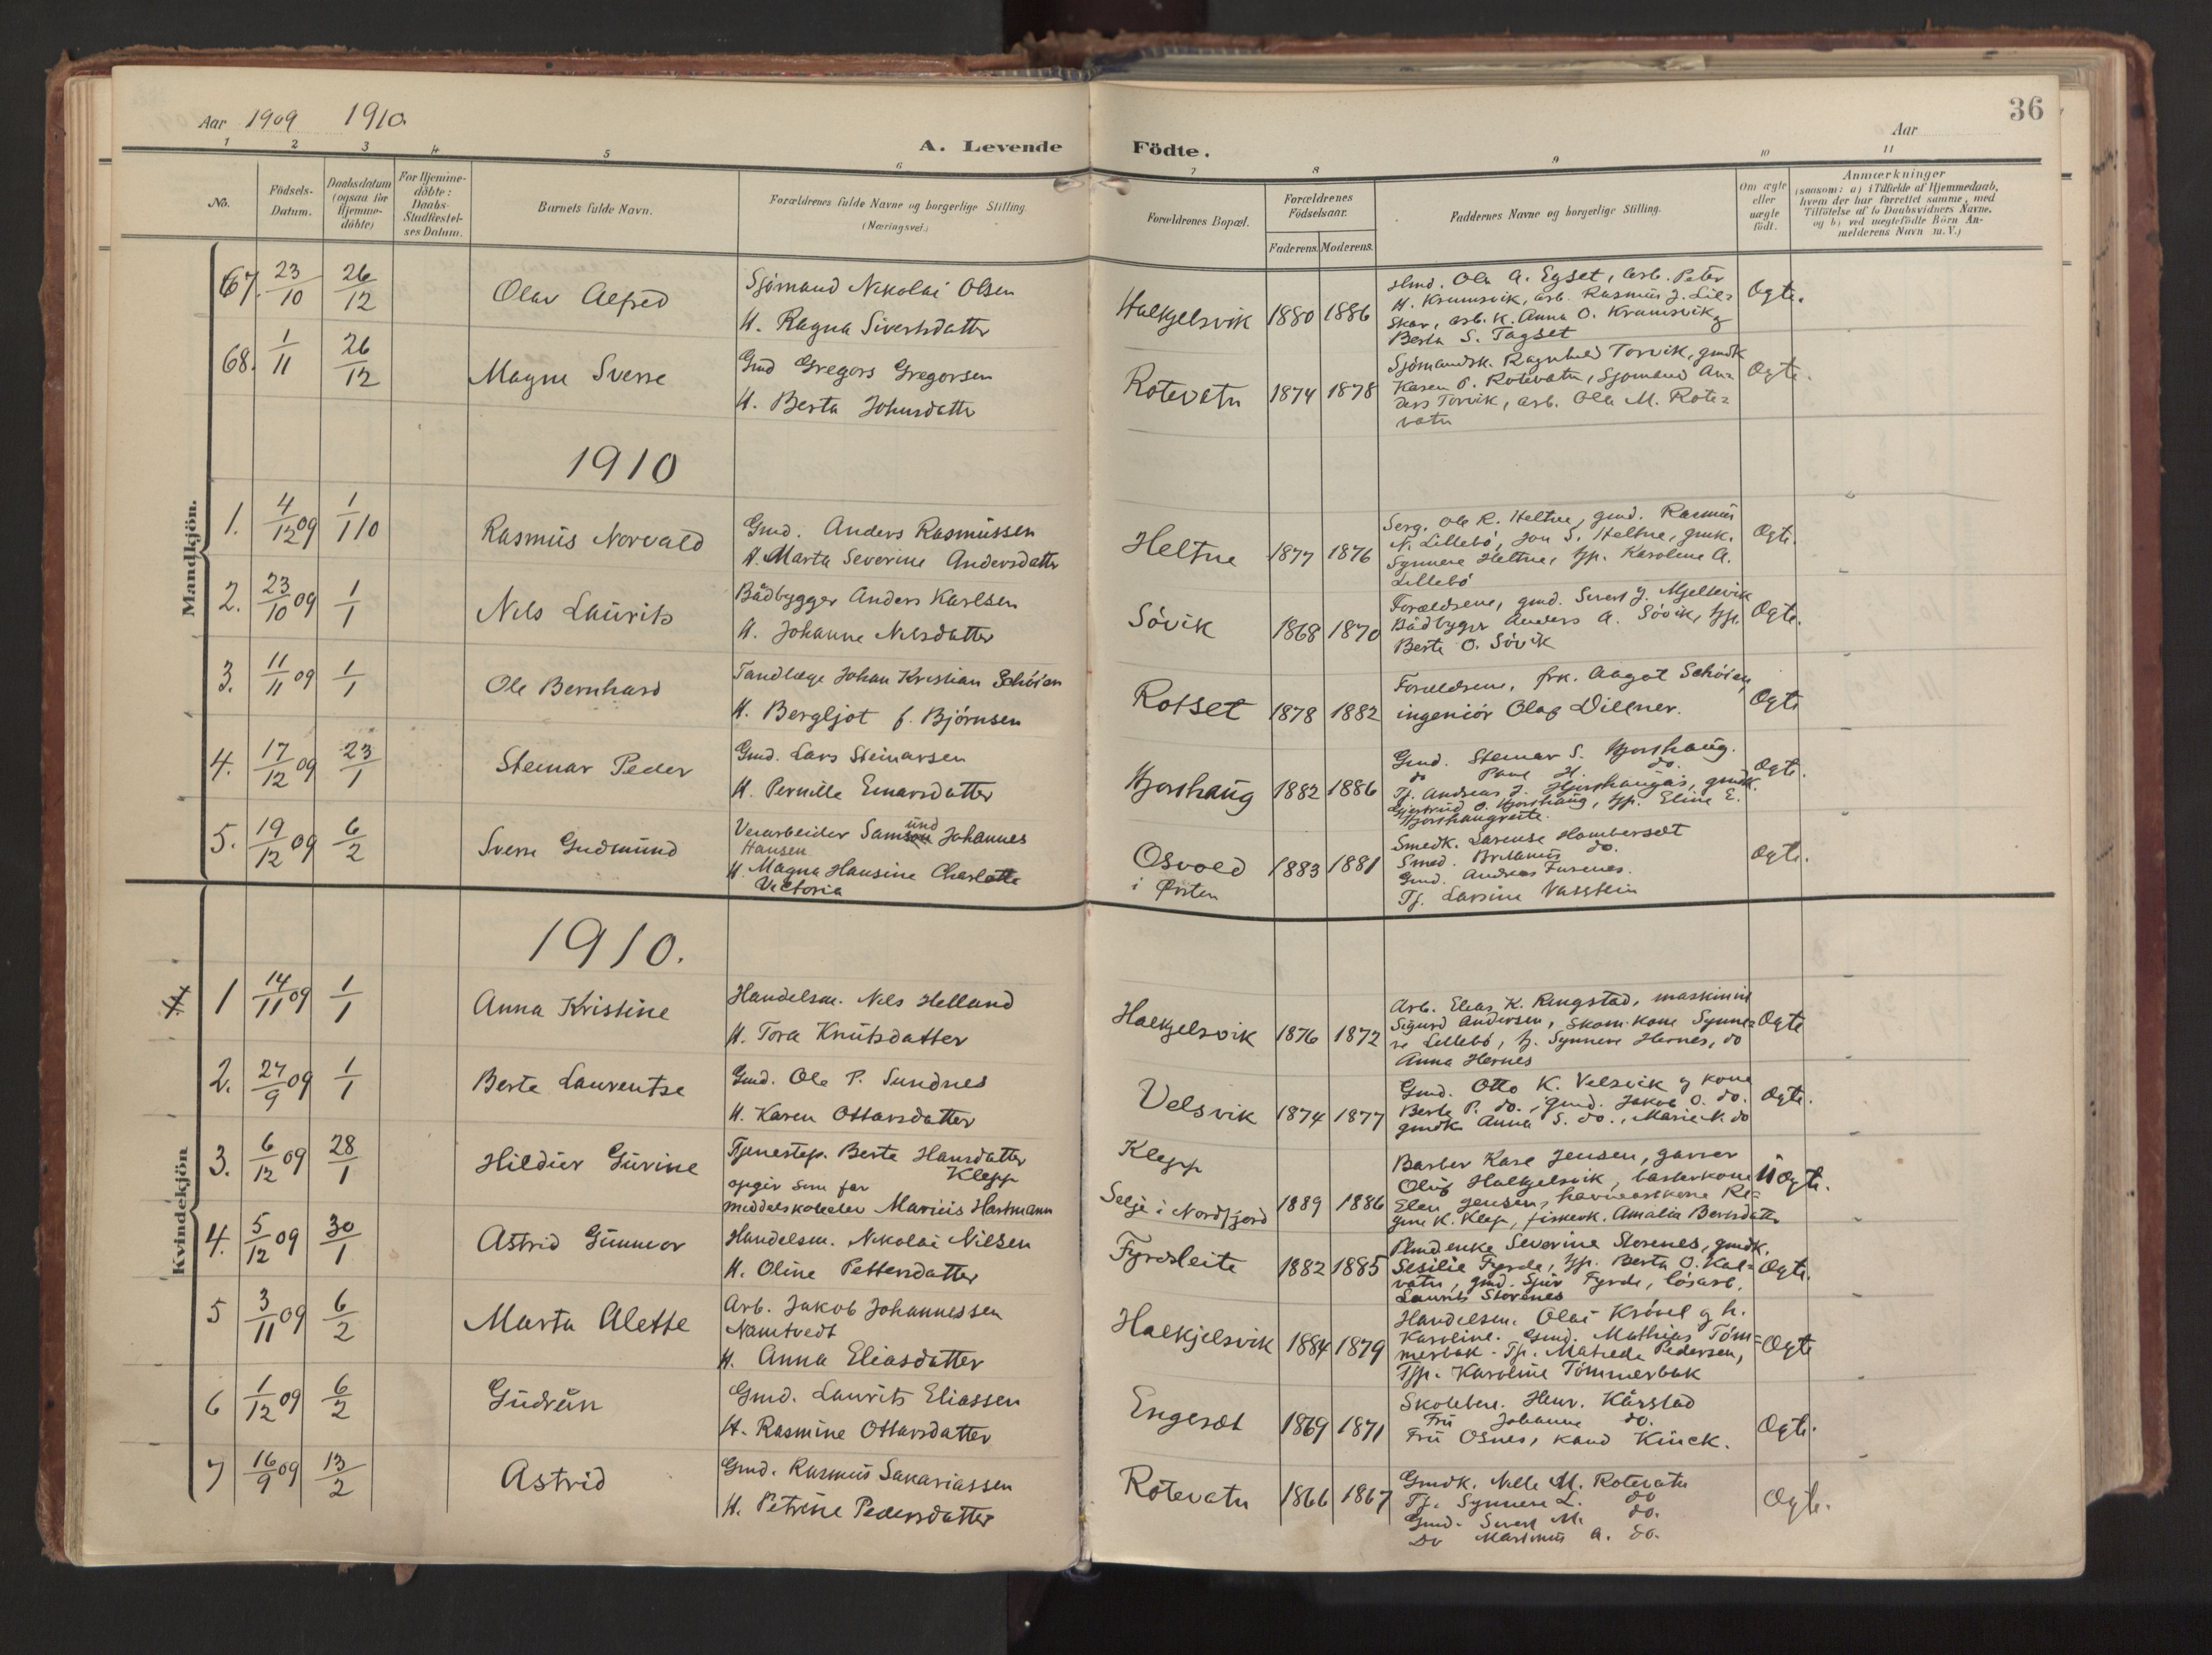 36
Aar 1909 1910.
Aar
A. Levende Födte.
1 2 3 4 5 6 7 8 9 10 11
No.
Födsels-
Datum.
Daabsdatum
(ogsaa for
Hjemme-
döbte)
For Hjemme-
döbte:
Daabs-
Stadfæstel-
ses Datum.
Barnets fulde Navn.
Forældrenes fulde Navne og borgerlige Stilling.
(Næringsvei.)
Forældrenes Bopæl.
Forældrenes
Födselsaar.
Faderens. Moderens.
Faddernes Navne og borgerlige Stilling.
Om ægte
eller
uægte
födt.
Anmærkninger
(saasom: a) i Tilfælde af Hjemmedaab,
hvem der har forrettet samme, med
Tilföielse af to Daabsvidners Navne.
og b) ved uægtefödte Börn An-
melderens Navn m. V.)
Mandkjön.
67. 23/10 26/12 Olav Alfred
Sjömand Nikolai Olsen
H. Ragna Sivertsdatter
Halkjelsvik 1880 1886
Gmd. Ole A. Egset, arb. Peter
H. Kramsvik, arb. Rasmus J. Lil=
skar, arb. k. Anna O. Kramsvik og
Berta S. Tagset
Ogte.
68. 1/11 26/12 Magne Sverre
Gmd Gregors Gregorsen
H. Berta Johnsdattr
Rotevatn 1874 1878
Sjömandsk. Ragnhild Torvik, gmdk
Karen P. Rotevatn, Sjömand An=
ders Torvik, arb. Ole M. Rote=
vatn
Ogte.
1910
1. 4/12 09 1/1 10 Rasmus Norvald
Gmd. Anders Rasmussen
H. Marta Severine Andersdatter
Heltne 1877 1876
Serg. Ole R. Heltne, gmd. Rasmus
N. Lillebö, Jon S. Heltne, gmk.
Synnere Heltne, tjp. Karoline A.
Lillebö
Ogte.
2. 23/10 09 1/1 Nils Laurits
Bådbygger Anders Karlsen
H. Johanne Nilsdatter
Sövik 1868 1870
Forældrene, gmd. Sivert J. Mjelkevik
Bådbyger Anders A. Sövik, tjp.
Berte O. Sövik
Ogte.
3. 11/11 09 1/1 Ole Bernhard
Tandlæge Johan Kristian Schöien
H. Bergljot f. Björnsen
Rotset 1878 1882
Forældrene, frk. Aagot Schöien,
ingeniör Olaf Dillner.
Ogte
4. 17/12 09 23/1 Steinar Peder
Gmd. Lars Steinarsen
H. Pernille Einarsdatter
Hjorthaug 1882 1886
Gmd. Steinar S. Hjorthaug.
do Paul H. do.
Tj. Andreas J. Hjorthaugås, gmdk.
Gjertrud O. Hjorthaug, tjp. Eline E.
Hjorthaugreite.
Ogte.
5. 19/12 09 6/2 Sverre Gudmund
Veiarbeider Samund Johannes
Hansen
H. Magna Hansine Charlotte
Victoria
Osvold
i Örsten
1883 1881
Smedk. Larense Hamberset
Smed. do.
Gmd. Andreas Furenes.
Tj. Larsine Vasstein
Ogte.
Kvindekjön
1910.
1 14/11 09 1/1 Anna Kristine
Handelsm. Nils Helland
H. Tora Knutsdatter
Halkjelsvik 1876 1872
Arb. Elias K. Ringstad, maskinist
Sigurd Andersen, skom. kone Synne=
ve Lillebö, tj. Synnere Hernes, do
Anna Hernes
Ogte
2. 27/9 09 1/1 Berte Laurentse
Gmd. Ole P. Sundnes
H. Karen Ottarsdatter
Velsvik 1874 1877
Gmd. Otto K. Velsvik og kone
Berte P. do., gmd. Jakob O. do.
gmdk Anna S. do., Marie N. do
Ogte.
3. 6/12 09 28/1 Hildur Gurine
Tjenestep. Berte Hansdatter
Klepp
opgir som far
middelskoleelev Marius Hartmann
Klepp
Selje i Nordfjord
1889 1886
Barber Karl Jensen, garver
Oluf Halkjelsvik, barberkone
Elen Jensen, Re=
gine K. Klep, fiskerk. Amalia Berntsdatter
Uogte.
4. 5/12 09 30/1 Astrid Gunnvor
Handelsm. Nikolai Nilsen
H. Oline Pettersdatter
Fyrdsleite 1882 1885
Plmdenke Severine Storenes, gmdk.
Sesilie Fyrde, tjp. Berta O. Kal=
vatn, gmd. Sjur Fyrde, lösarb.
Laurits Storenes
Ogte.
5 3/11 09 6/2 Marta Alette
Arb. Jakob Johannessen
Namtvedt
H. Anna Eliasdatter
Halkjelsvik 1884 1879
Handelsm. Olai Krövel og h.
Karoline. Gmd. Mathias Töm=
merbak. Tjp. Matilda Pedersen,
Tjp. Karoline Tömmerbak
Ogte
6 1/12 09 6/2 Gudrun
Gmd. Laurits Eliassen
H. Rasmine Ottarsdatter
Engeset 1869 1871
Skolebest. Henr. Kårstad
Fru Johanne do.
Fru Osnes, kand Kinck.
Ogte.
7 16/9 09 13/2 Astrid
Gmd. Rasmus Sakariassen
H. Petrine Pedersdatter
Rotevatn 1866 1867
Gmdk. Nille M. Rotevatn
Tj. Synnere L. do
Gmd. Sivert M. do.
Do Martinus A. do.
Ogte.